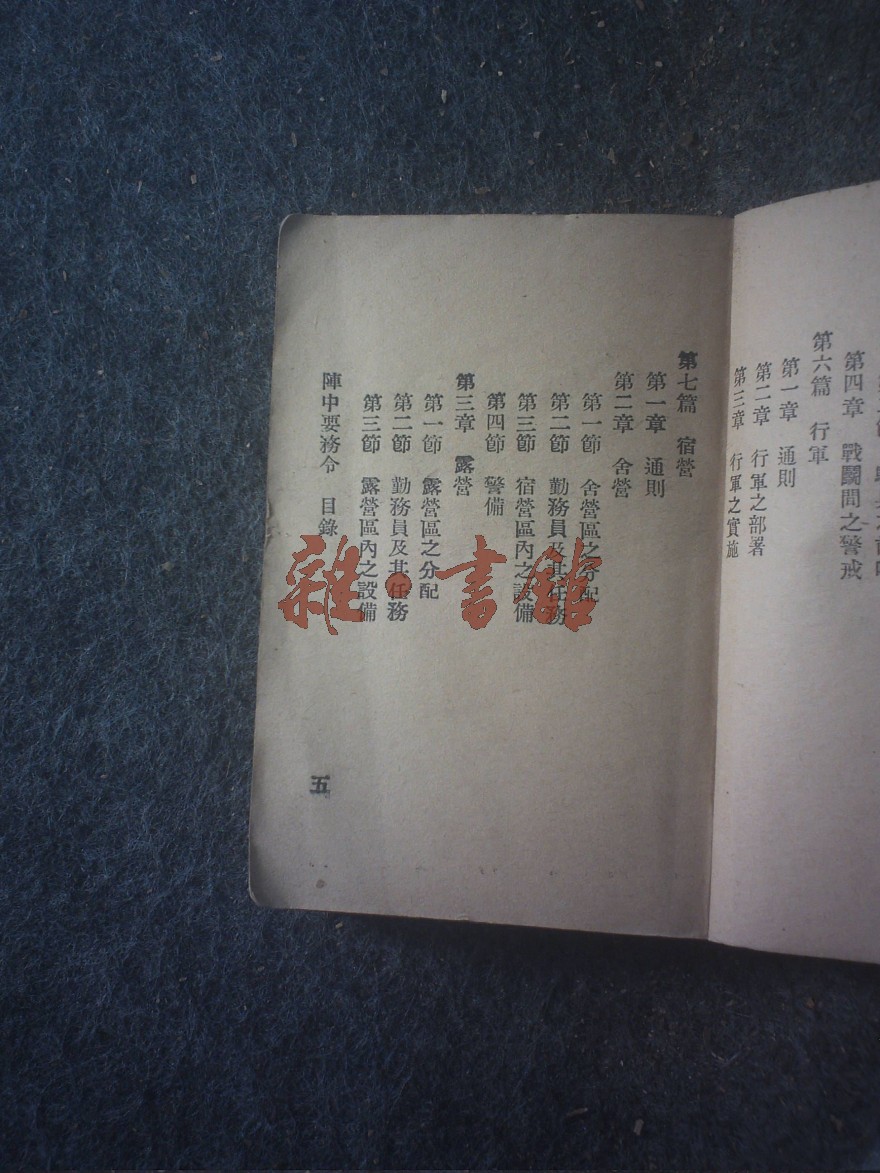 第四章　戰鬭間之警戒
第六篇　行軍
第一章　通則
第二章　行軍之部署
第三章　行軍之實施
第七篇　宿營
第一章　通則
第二章　舍營
第一節　舍營區之分配
第二節　勤務員及其任務
第三節　宿營區內之設備
第四節　警備
第三章　露營
第一節　露營區之分配
第二節　勤務員及其任務
第三節　露營區內之設備
陣中要務令　目錄
五
雜·書館